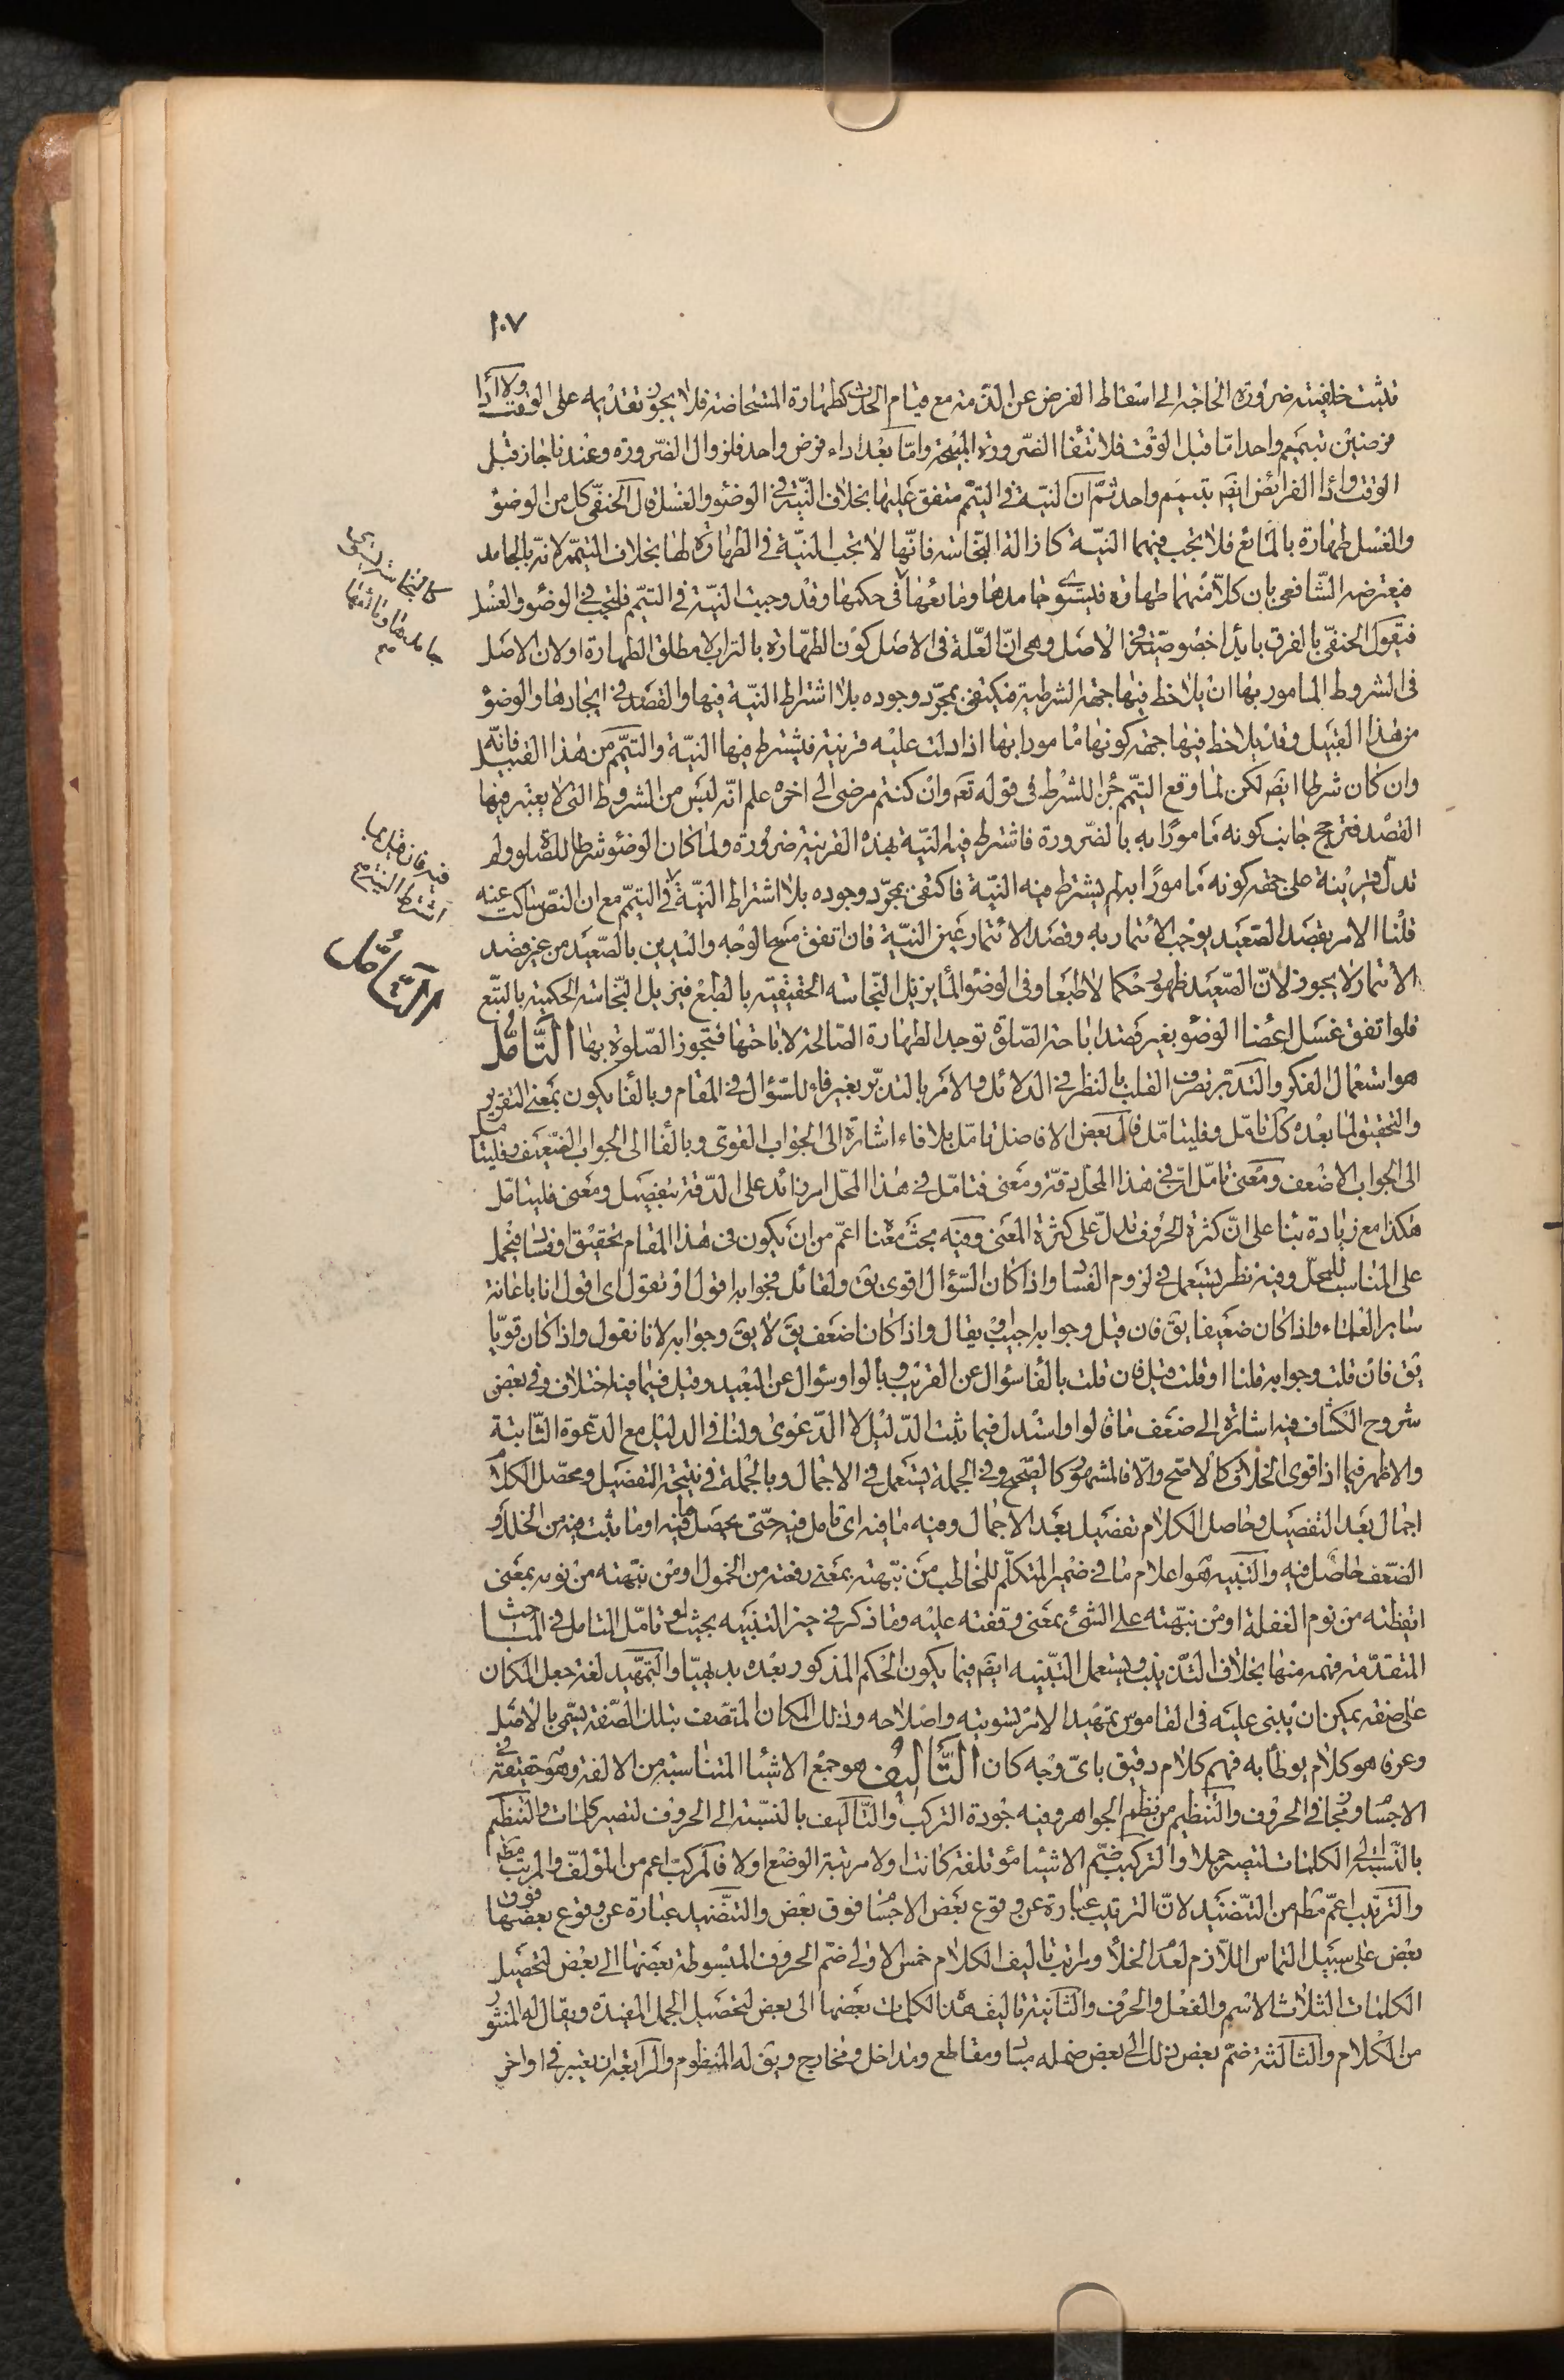 ١٠٧
فثبت خلفيته ضرورة الحاجة الى اسقاط الفرض عن الذمة مع قيام الحدث كطهارة المستحاضة فلا يجوز تقديمه على الوقت ولا اداء
فرضين بتيمم واحد اما قبل الوقت فلانتفا الضرورة المبيحة واما بعد اداء فرض واحد فلزوال الضرورة وعندنا جاز قبل
الوقت واداا الفرائض ايضه بتيمم واحد ثم ان النية في التيمم متفق عليها بخلاف النية في الوضؤ والغسل قال الحنفى كل من الوضؤ
والغسل طهارة بالمائع فلا يجب فيهما النية كازالة النجاسة فانها لا تجب النية في الطهارة لها بخلاف التيمم لانه بالجامد
فيعترضه الشافعي بان كلا منهما طهارة فيستوى جامدها ومائعها في حكمها وقد وجبت النية في التيمم فلتجب في الوضؤ والغسل
كالنجاسة يستوى
جامدها ومائعها
صح
فيقول الحنفى بالفرق بابداء خصوصية في الاصل وهى ان العلة في الاصل كون الطهارة بالتراب لا مطلق الطهارة اولان الاصل
فى الشروط المامور بها ان يلاحظ فيها جهة الشرطية فيكتفى بمجرد وجوده بلا اشتراط النية فيها والقصد في ايجادها والوضؤ
من هذا القبيل وقد يلاحظ فيها جهة كونها مامورا بها اذا دلت عليه قرينة فيشترط فيها النية والتيمم من هذا القبيل فانه
وان كان شرطا ايضه لكن لما وقع التيمم جزا للشرط فى قوله تعه وان كنتم مرضى الى اخره علم انه ليس من الشروط التى لا يعتبر فيها
القصد فترجح جانب كونه مامورا به بالضرورة فاشترط فيه النية بهذه القرينة ضرورة ولما كان الوضؤ شرطا للصلوة ولم
تدل قرينة على جهة كونه مامورا به لم يشترط فيه النية فاكتفى بمجرد وجوده بلا اشتراط النية في التيمم مع ان النص ساكت عنه
فيه فان قيل بما
اشترط النية صح
قلنا الامر بقصد الصعيد يوجب الائتمار به وقصد الائتمار عين النية فان اتفق مسح الوجه واليدين بالصعيد من غير قصد
الائتمار لا يجوز لان الصعيد طهور حكما لا طبعا وفى الوضؤ الماء يزيل النجاسة الحقيقية بالطبع فيزيل النجاسة الحكمية بالتبع
التأمل
فلو اتفق غسل اعضا الوضؤ بغير قصد اباحة الصلوة توجد الطهارة الصالحة لاباحتها فتجوز الصلوة بها التأمل
هو استعمال الفكر والتدبر تصرف القلب بالنظر في الدلائل والامر بالتدبر بغير فاء للسؤال في المقام وبالفا يكون بمعنى التقرير
والتحقيق لما بعده كك تامل وفليتامل قال بعض الافاضل تامل بلا فاء اشارة الى الجواب القوى وبالفا الى الجواب الضعيف وفليتامل
الى الجواب الاضعف ومعنى تامل ان في هذا المحل دقة ومعنى فتامل في هذا المحل امر زائد على الدقة بتفصيل ومعنى فليتامل
هكذا مع زيادة بنا على ان كثرة الحروف تدل على كثرة المعنى وفيه بحث معناه اعم من ان يكون في هذا المقام تحقيق او فساد فيحمل
على المناسب للمحل وفيه نظر يستعمل في لزوم الفساد واذا كان السؤال اقوى يق ولقائل فجوابه اقول او نقول اى اقول انا باعانة
ساير العلماء واذا كان ضعيفا يق فان قيل وجوابه اجيب او يقال واذا كان اضعف يق لا يق وجوابه لانا نقول واذا كان قويا
يق فان قلت وجوابه قلنا او قلت وقيل فان قلت بالفا سؤال عن القريب وبالواو سؤال عن البعيد وقيل فيما فيه اختلاف وفي بعض
شروح الكشاف فيه اشارة الى ضعف ما قالوا واستدل فيما ثبت الدليل لا الدعوى ولنا في الدليل مع الدعوة الثابتة
والاظهر فيما اذا قوى الخلاف كالاصح والا فالمشهور كالصحيح وفي الجملة يستعمل في الاجمال وبالجملة في نتيجة التفصيل ومحصل الكلام
اجمال بعد التفصيل وحاصل الكلام تفصيل بعد الاجمال وفيه ما فيه اى تامل فيه حتى يحصل ما فيه او ما يثبت فيه من الخلل و
الضعف حاصل فيه والتنبيه هو اعلام ما في ضمير المتكلم للمخاطب من نبهته بمعنى رفعته من الخمول او من نبهته من نومه بمعنى
ايقظته من نوم الغفلة او من نبهته على الشئ بمعنى وقفته عليه وما ذكر في حيز التنبيه بحيث لو تامل المتامل في المباحث
المتقدمة فهمه منها بخلاف التذنيب ويستعمل التنبيه ايضه فيما يكون الحكم المذكور بعده بديهيا والتمهيد لغة جعل المكان
على صفة يمكن ان يبنى عليه فى القاموس تمهيد الامر تسويته واصلاحه وذلك المكان المتصف بتلك الصفة يسمى بالاصل
وعرفا هو كلام يوطأ به فهم كلام دقيق باى وجه كان التأليف هو جمع الاشيا المتناسبة من الالفة وهو حقيقة في
الاجسام ومجاز في الحروف والتنظيم من نظم الجواهر وفيه جودة التركيب والتاليف بالنسبة الى الحروف لتصير كلمات والتنظيم
بالنسبة الى الكلمات لتصير جملا والتركيب ضم الاشيا مؤتلفة كانت اولا مرتبة الوضع اولا فالمركب اعم من المؤلف والمرتب مطه
والترتيب اعم مطه من التنضيد لان الترتيب عبارة عن وقوع بعض الاجسام فوق بعض والتنضيد عبارة عن وقوع بعضها فوق
بعض على سبيل التماس اللازم لعدم الخلأ ومراتب تاليف الكلام خمس الاولى ضم الحروف المبسوطة بعضها الى بعض لتحصيل
الكلمات الثلاث الاسم والفعل والحرف والثانية تاليف هذه الكلمات بعضها الى بعض لتحصيل الجمل المفيدة ويقال له المنثور
من الكلام والثالثة ضم بعض ذلك الى بعض ضما له مباد ومقاطع ومداخل ومخارج ويق له المنظوم والرابعة ان يعتبر في اواخر